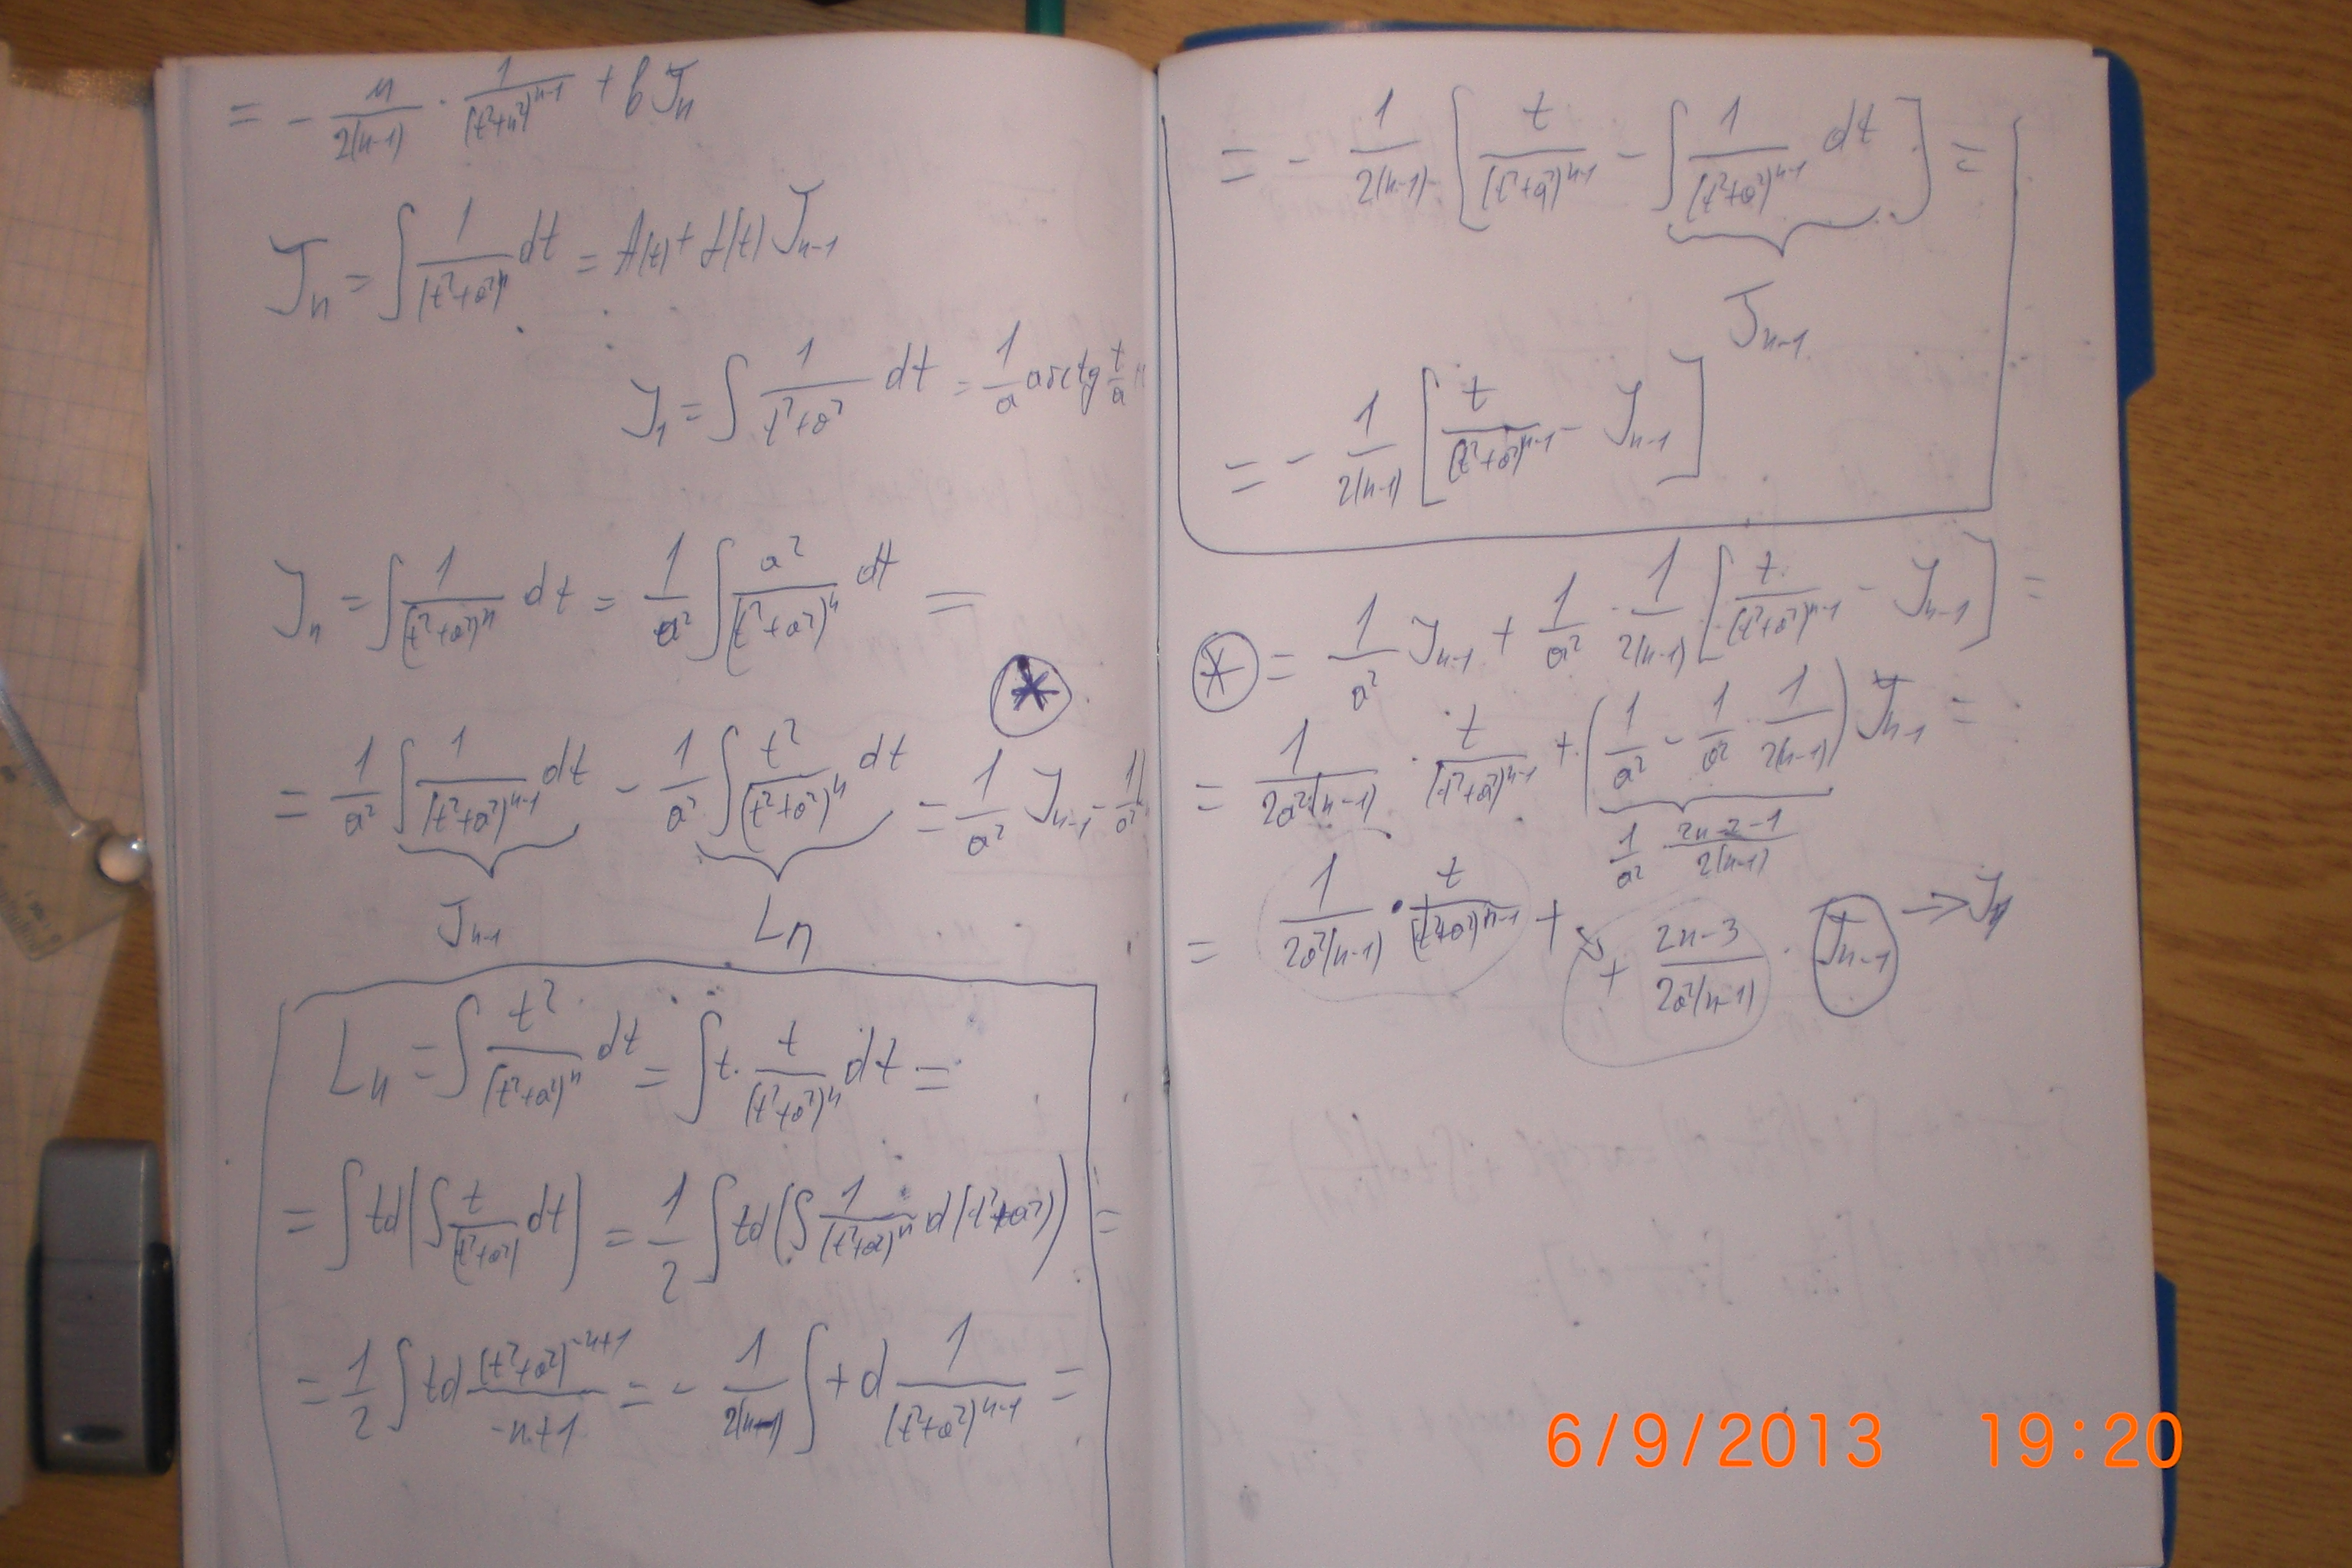 = - M/2(n-1) · 1/(t²+a²)ⁿ⁻¹ + b Jₙ
Jₙ = ∫ 1/(t²+a²)ⁿ dt = A(t) + f(t) Jₙ₋₁
J₁ = ∫ 1/(t²+a²) dt = 1/a arctg t/a
Jₙ = ∫ 1/(t²+a²)ⁿ dt = 1/a² ∫ a²/(t²+a²)ⁿ dt =
*
= 1/a² ∫ 1/(t²+a²)ⁿ⁻¹ dt - 1/a² ∫ t²/(t²+a²)ⁿ dt = 1/a² Jₙ₋₁ - 1/a²
Jₙ₋₁ Lₙ
Lₙ = ∫ t²/(t²+a²)ⁿ dt = ∫ t · t/(t²+a²)ⁿ dt =
= ∫ td(∫ t/(t²+a²) dt) = 1/2 ∫ td(∫ 1/(t²+a²)ⁿ d(t²+a²)) =
= 1/2 ∫ td (t²+a²)⁻ⁿ⁺¹/-n+1 = - 1/2(n-1) ∫ t d 1/(t²+a²)ⁿ⁻¹ =
= - 1/2(n-1) [ t/(t²+a²)ⁿ⁻¹ - ∫ 1/(t²+a²)ⁿ⁻¹ dt ] =
Jₙ₋₁
= - 1/2(n-1) [ t/(t²+a²)ⁿ⁻¹ - Jₙ₋₁ ]
* = 1/a² Jₙ₋₁ + 1/a² · 1/2(n-1) [ t/(t²+a²)ⁿ⁻¹ - Jₙ₋₁ ] =
= 1/2a²(n-1) · t/(t²+a²)ⁿ⁻¹ + (1/a² - 1/a² · 1/2(n-1)) Jₙ₋₁ =
1/a² 2n-2-1/2(n-1)
= 1/2a²(n-1) · t/(t²+a²)ⁿ⁻¹ +
+ 2n-3/2a²(n-1) · Jₙ₋₁ → Jₙ
6/9/2013 19:20